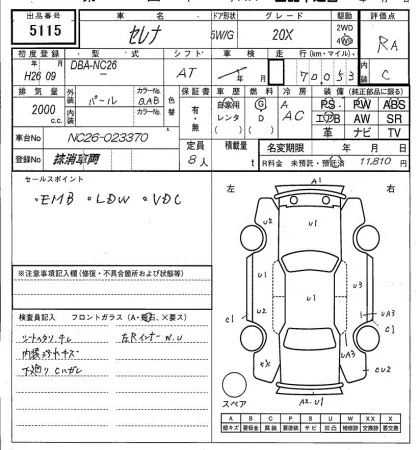 出品番号 車名 ドア形状 グレード 駆動 評価点
5115 セレナ 5W/G 20X 2WD 4WD RA
初度登録 型式 シフト 車検 走行(km・マイル)
H26 09 DBA-NC26 AT 年 月 70,053 C
排気量 外装 カラーNo. 色替 保証書 車歴 燃料 冷房 装備(純正部品に限る)
2000 c.c. パール QAB 有・無 自家用 レンタ G D A AC PS PW ABS
内装 カラーNo. エアB AW SR
革 ナビ TV
車台No NC26-023370 定員 積載量 名変期限 年 月 日
登録No 抹消車両 8人 t R料金 未預託・預託済 11,810 円
セールスポイント
・EMB ・LDW ・VDC
左 右
A1
U2 U1
U1 U1 U3
U2 C1 C1 UA3
XX UA3 CU2
A2・U1
スペア
※注意事項記入欄(修復・不具合箇所および状態等)
検査員記入 フロントガラス(A・飛石、×要ス)
シートヘタリ、キレ 左Rインナー W.U
内装コゲ キズ
下廻り Cハガレ
A B C P S U W X XX
線キズ 要板金 腐蝕 要塗装 サビ 凹凸 補修跡 要交換 交換跡